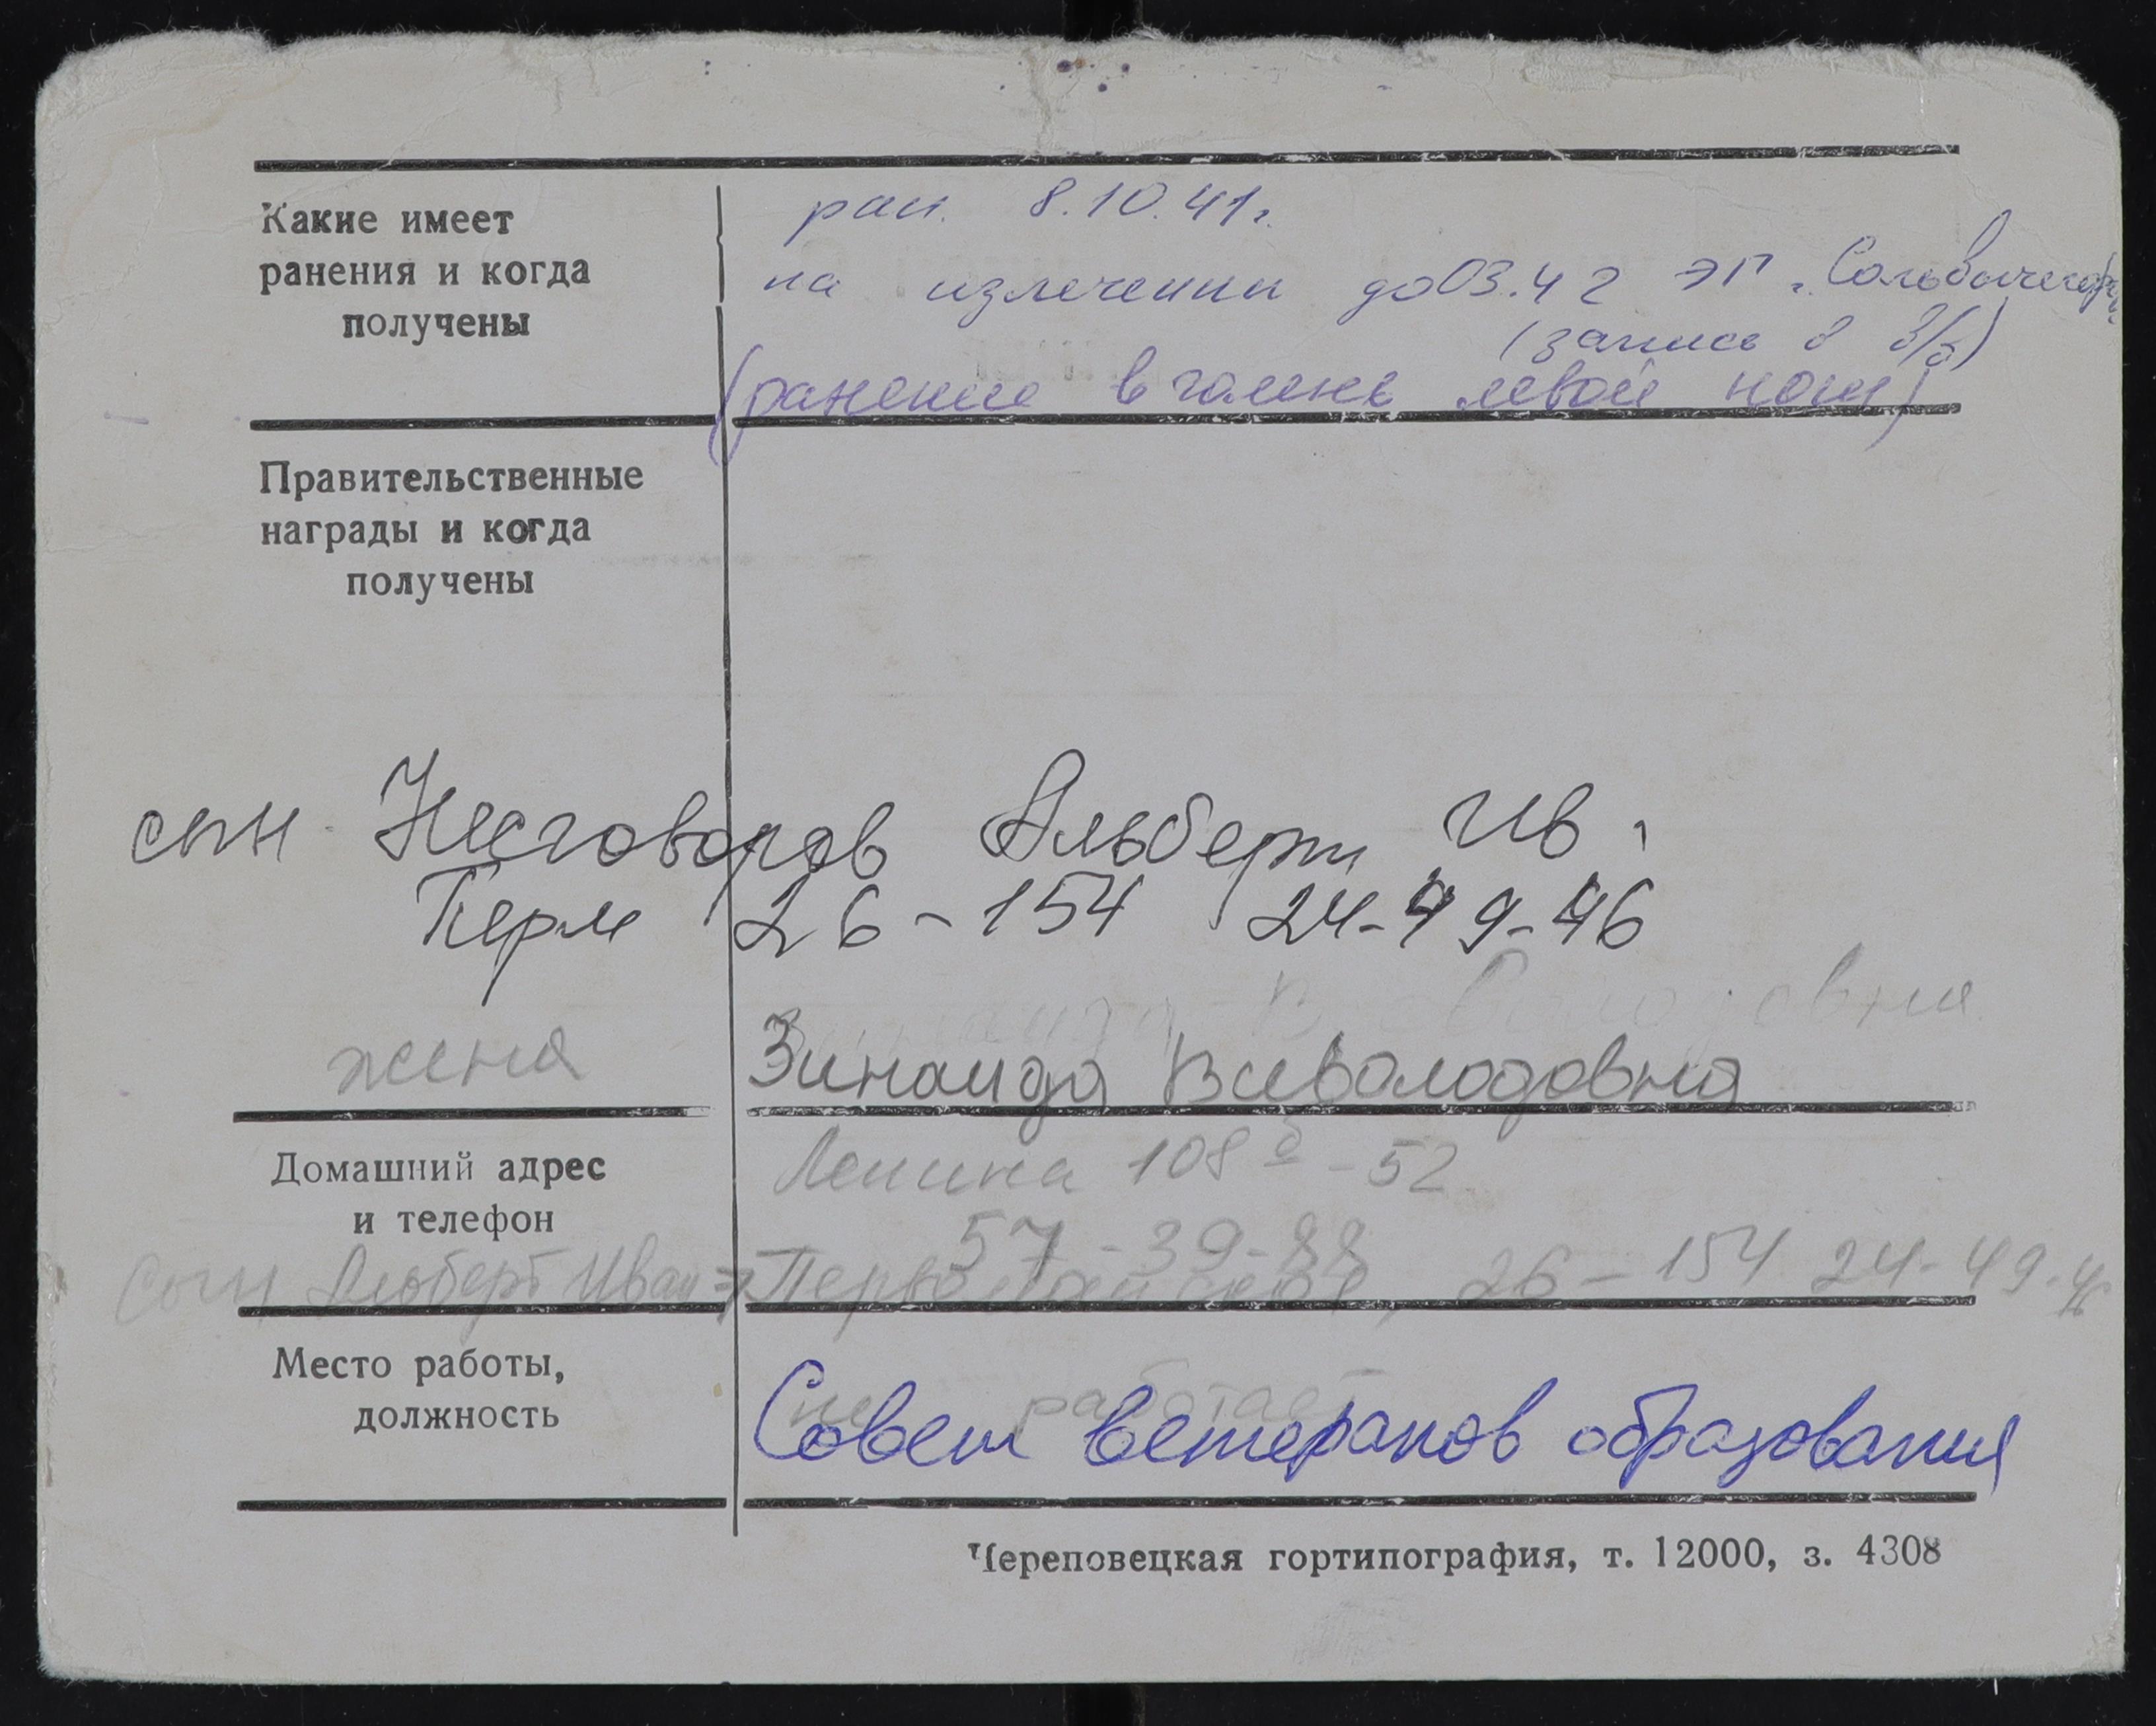 Какие имеет
ранения и когда
получены
ран. 8.10.41г.
на излечении до 03.42 ЭГ "Сольвычегодск"
(запись в в/б)
(ранение в голень левой ноги)
Правительственные
награды и когда
получены
сын Неговоров Альберт Ив.
Перм 26-154 24-49-46
жена Зинаида Всеволодовна
Домашний адрес
и телефон
Ленина 108б-52
57-39-88
Сын Альберт Иван Первомайская, 26-154 24-49-46
Место работы,
должность
не работает
Совет ветеранов образования
Череповецкая гортипография, т. 12000, з. 4308